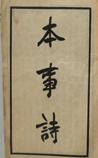 本事詩